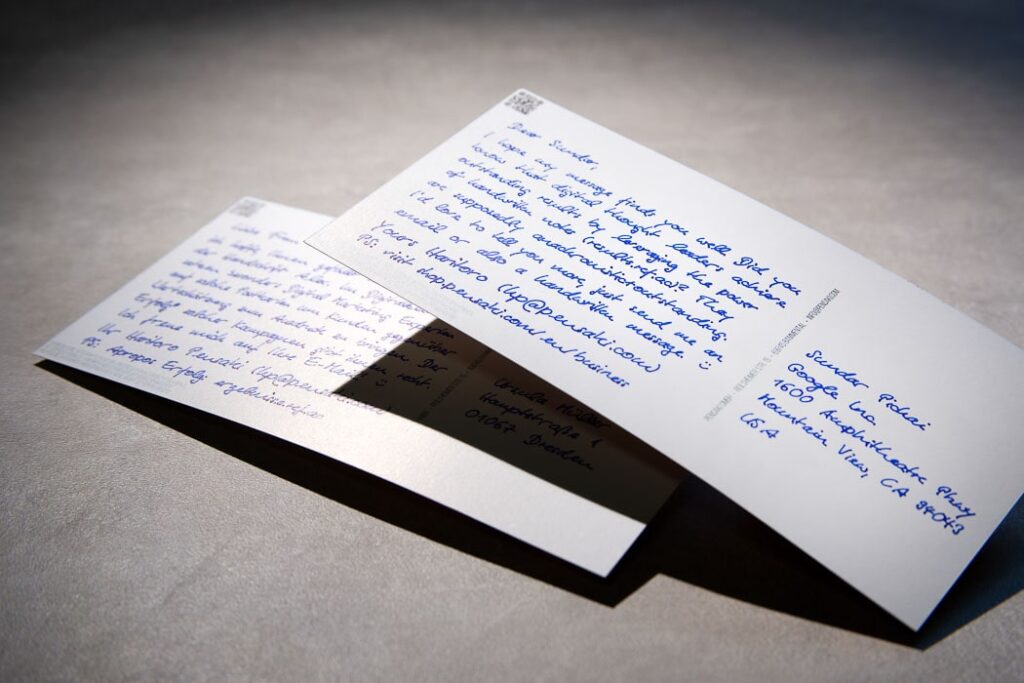 Dear Sundar,
I hope my message finds you well. Did you
know that digital thought leaders achieve
outstanding results by leveraging the power
of handwritten notes They
are supposedly anachronistic outstanding.
I'd love to tell you more, just send me an
email or also a handwritten message. :)
Yours Haritoro (hp@pensaki.com)
PS: visit shop.pensaki.com/en/business
PENSAKI GMBH
Sundar Pichai
Google Inc
1600 Amphitheatre Pkwy
Mountain View, CA 94043
USA
Liebe Frau
der Handschrift Digital
Digital Marketing Experten
und solche Kunden gegenüber
Wertschätzung zum Ausdruck bringen. Der
Erfolg solcher Kampagnen gibt ihnen recht.
Ich freue mich auf Ihre E-Mail
Ihr Haritoro Pensaki (hp@pensaki.com)
PS: Apropos Erfolg: ergebnisse.rfac
Ursula Müller
Hauptstraße 1
01067 Dresden